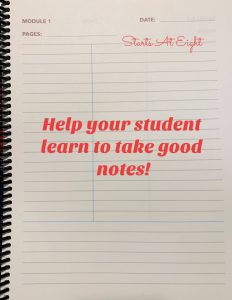 MODULE 1 DATE:
Starts At Eight
PAGES:
Help your student
learn to take good
notes!